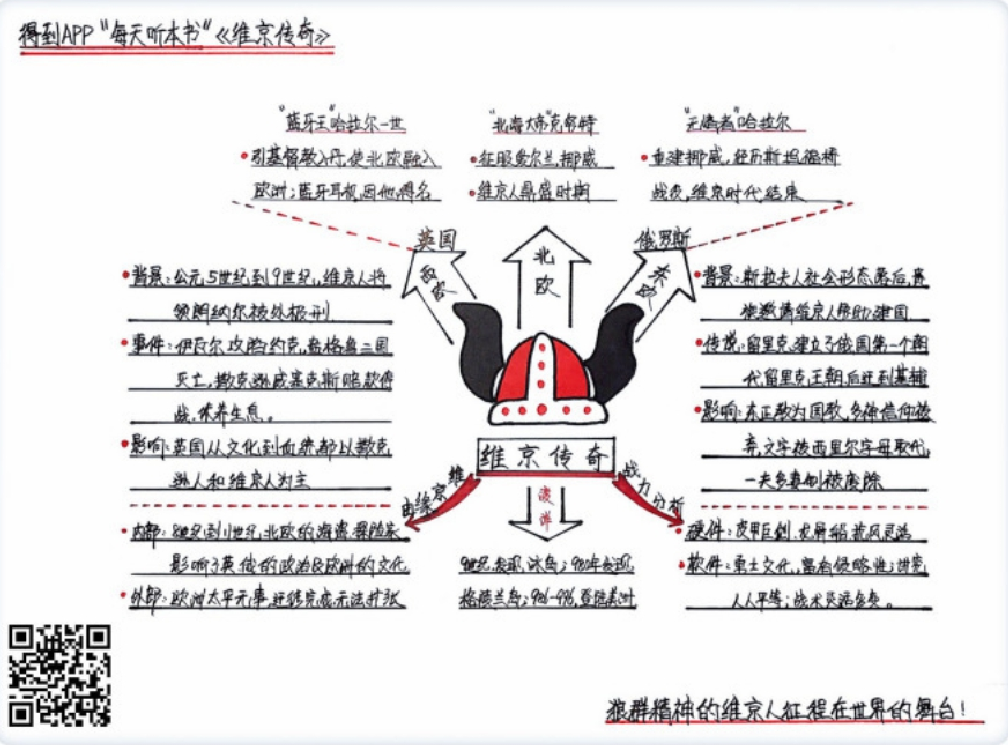 得到APP“每天听本书”《维京传奇》
“蓝牙王”哈拉尔一世
•引基督教入丹,使北欧融入
欧洲;蓝牙耳机因他得名
“北海大帝”克努特
•征服爱尔兰、挪威
•维京人鼎盛时期
“无情者”哈拉尔
•重建挪威,经历斯坦福桥
战役,维京时代结束
英国
西欧
北欧
俄罗斯
东欧
•背景:公元5世纪到9世纪,维京人将
领朗纳尔被处极刑
•事件:伊瓦尔攻陷约克,盎格鲁三国
灭亡,撒克逊威塞克斯赔款停
战,休养生息。
•影响:英国从文化到血缘都以撒克
逊人和维京人为主
•背景:斯拉夫人社会形态落后,
邀请维京人帮助建国
•传说:留里克建立了俄国第一个朝
代留里克王朝,后迁到基辅
•影响:东正教为国教,多神信仰被
弃,文字被西里尔字母取代,
一夫多妻制被废除
维京传奇
维京
战力分析
漂洋
•内部:8世纪到11世纪,北欧的海盗、探险家
影响了英俄的政治及欧洲的文化
•外部:欧洲太平无事,迁移完成,无法扩张
9世纪发现冰岛;980年发现
格陵兰岛;986-996,登陆美洲
•硬件:皮甲巨剑,龙屏船兼风灵活
•软件:勇士文化,富有侵略性;讲究
人人平等;战术灵活多变。
狼群精神的维京人征程在世界的舞台!